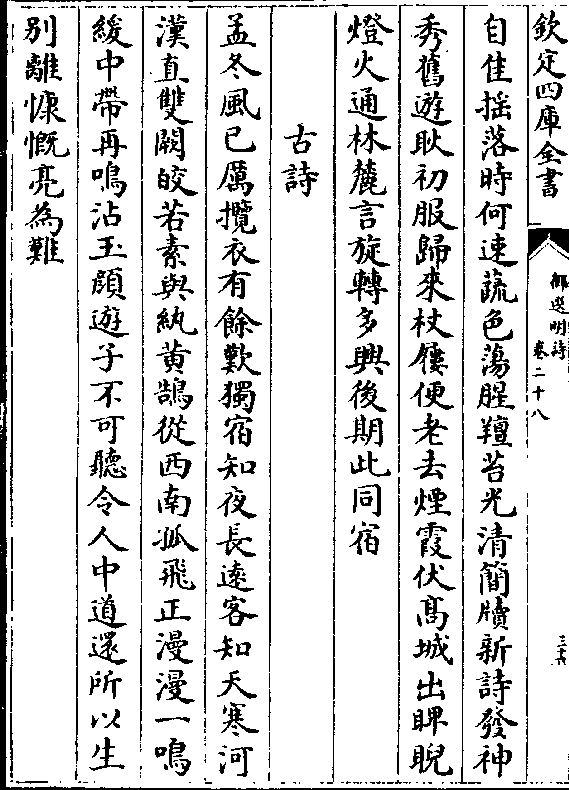 欽定四庫全書
御選明詩
卷二十八
自佳揺落時何速蔬色蕩腥羶苔光清簡牘新詩發神
秀舊遊耿初服歸來杖屨便老去煙霞伏髙城出睥睨
燈火通林麓言旋轉多興後期此同宿
古詩
孟冬風已厲攬衣有餘歎獨宿知夜長逺客知天寒河
漢直雙闕皎若素與紈黄鵠從西南孤飛正漫漫一鳴
緩中帶再鳴沾玉顔遊子不可聽令人中道還所以生
别離慷慨亮為難